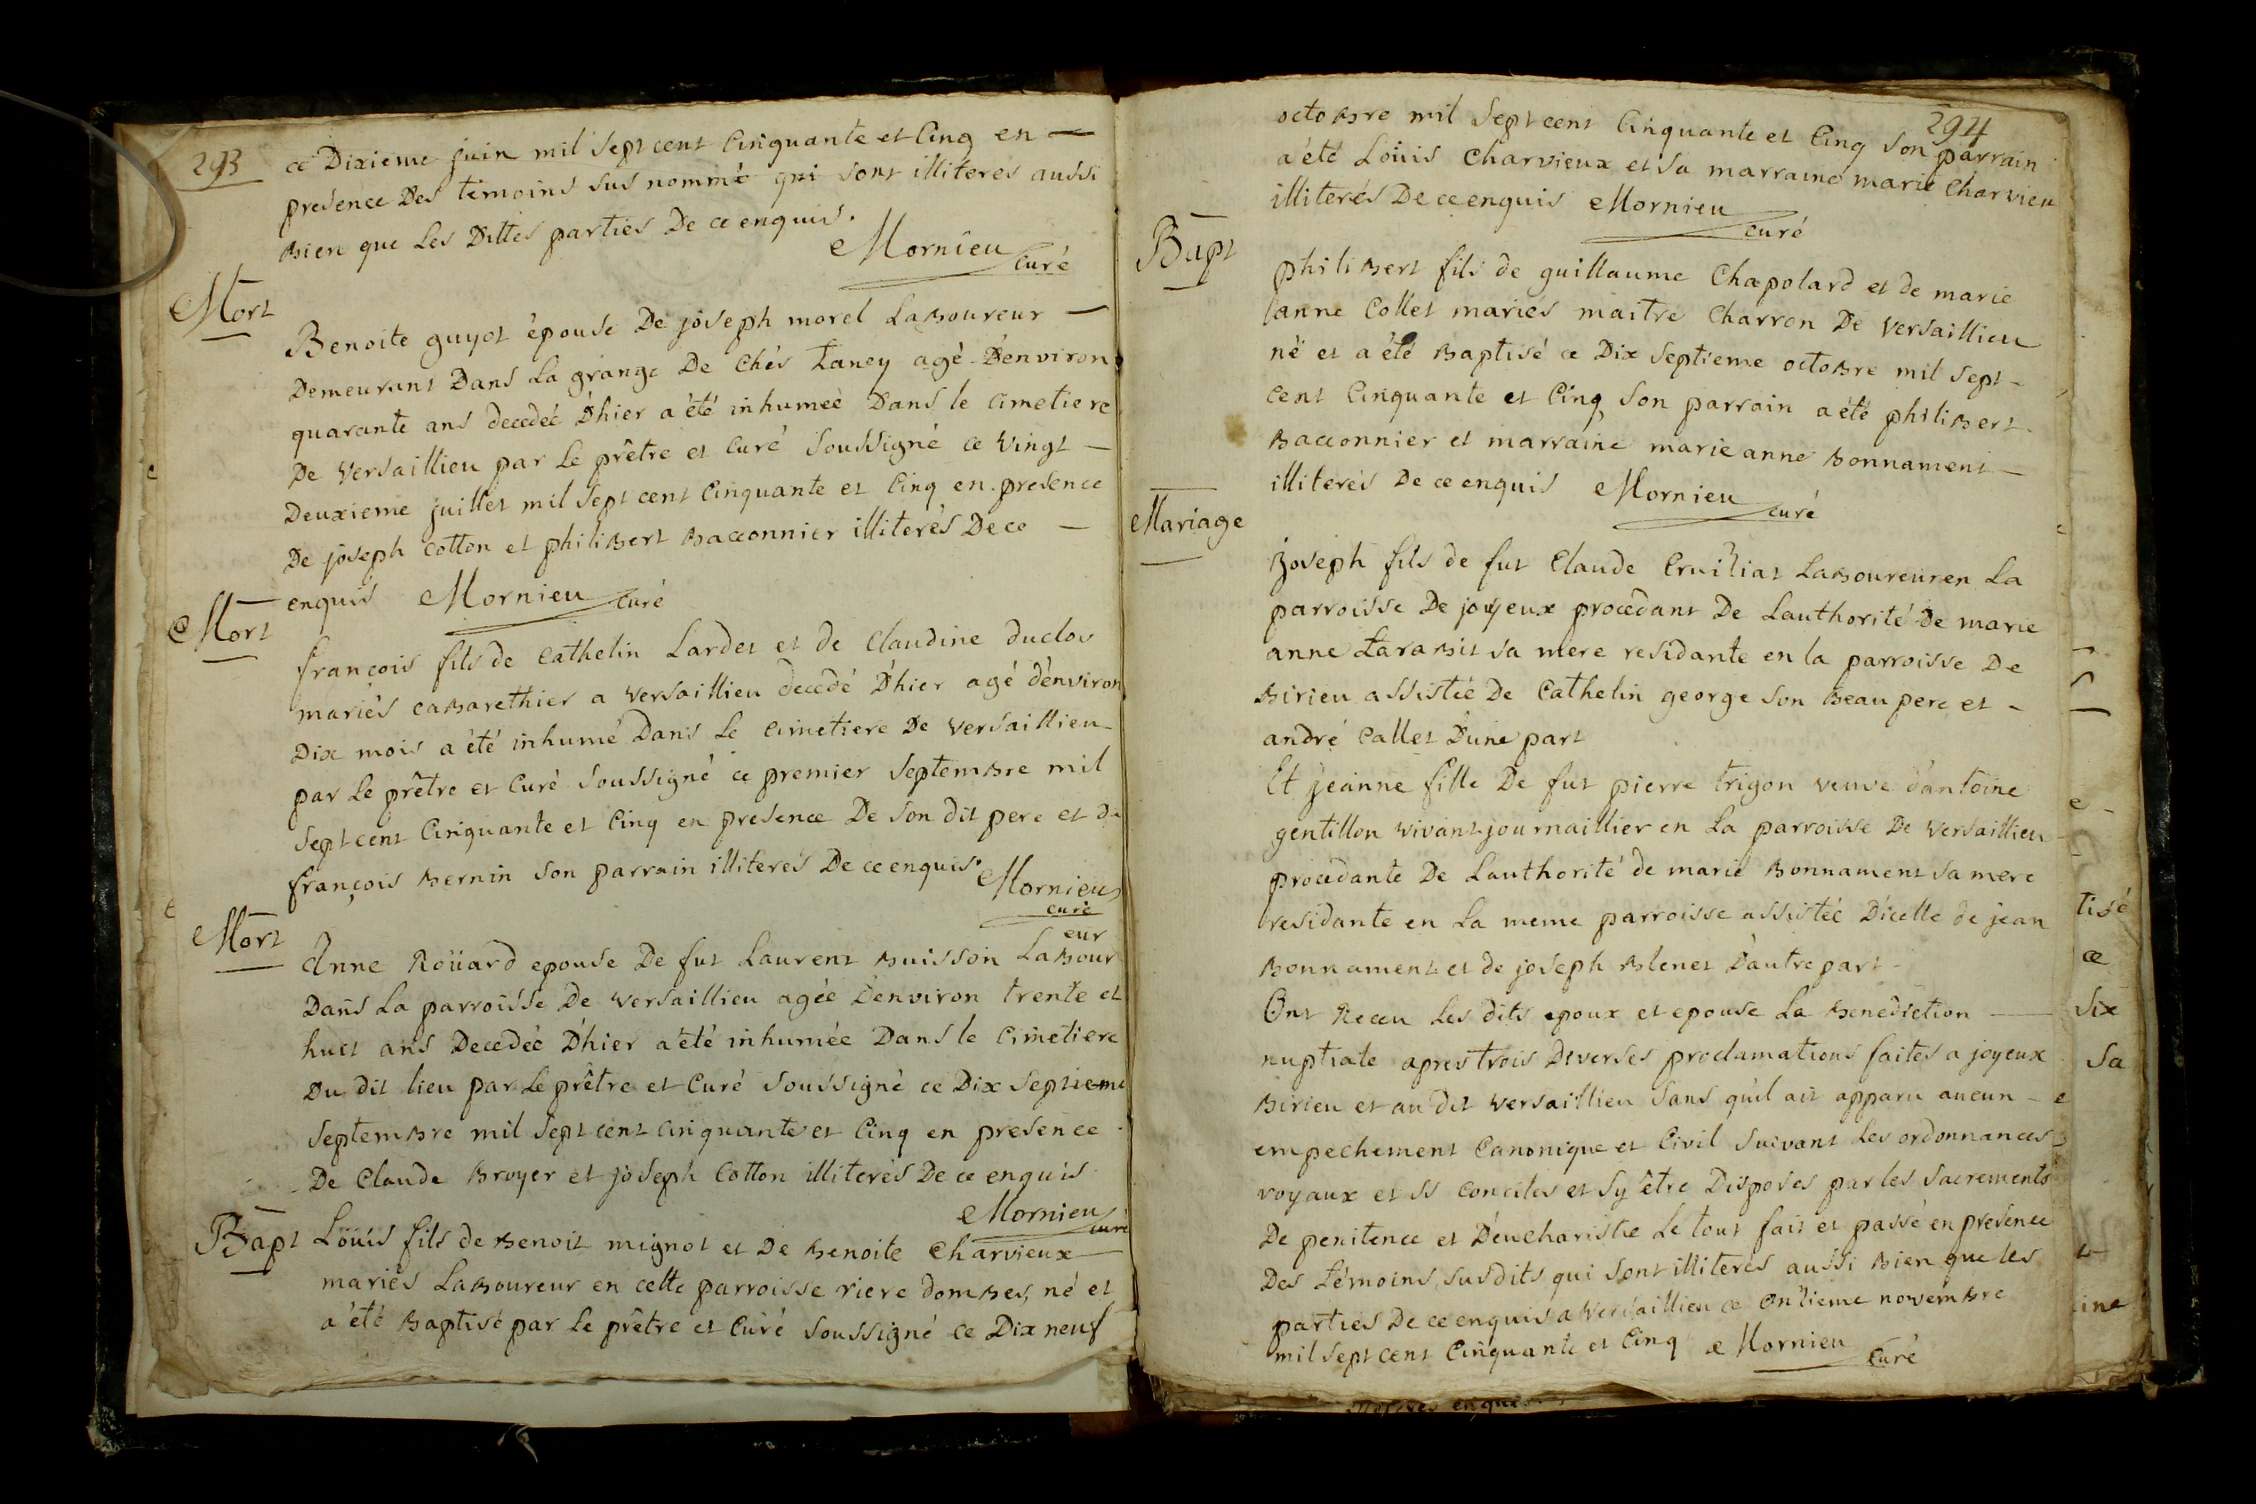 293
ce Dixieme juin mil sept cent Cinquante et Cinq en
presence Des temoins sus nommé qui sont illiteres aussi
bien que Les Dittes parties De ce enquis.
Mornieu Curé
Mort
Benoite guyot épouse De joseph morel Laboureur
Demeurant Dans La grange De Chés Taney agé D'environ
quarante ans decedéé D'hier a été inhuméé Dans le cimetiere
De Versaillieu par Le prêtre et Curé Soussigné ce Vingt
Deuxieme juillet mil Sept cent Cinquante et Cinq en presence
De joseph Cotton et philibert Bacconnier illiterés De ce
enquis Mornieu Curé
Mort
françois fils de Cathelin Lardet et de Claudine duclos
mariés cabarethier a Versaillieu decedé D'hier agé d'environ
Dix mois a été inhumé Dans Le Cimetiere De Versaillieu
par Le prêtre et Curé Soussigné ce premier Septembre mil
Sept cent Cinquante et Cinq en presence De Son dit pere et de
françois Bernin Son parrain illiterés De ce enquis.
Mornieu
curé
Mort
Anne Roüard epouse De fut Laurent Buisson Laboureur
Dans La parroisse De Versaillieu agée D'environ trente et
huit ans Decedéé D'hier a été inhumée Dans le Cimetiere
Du dit lieu par Le prêtre et Curé Soussigné ce Dix Septieme
Septembre mil Sept cent cinquante et Cinq en presence
De Claude Broyer et joseph Cotton illiterés De ce enquis
Mornieu curé
Bapt
Loüis fils de Benoit mignot et De Benoite Charvieux
mariés Laboureur en cette parroisse riere dombes, né et
a été Baptisé par Le prêtre et Curé Soussigné ce Dix neuf
294
octobre mil Sept cent Cinquante et Cinq Son parrain
a été Loüis Charvieux et Sa marraine marie Charvieu
illiterés De ce enquis Mornieu
curé
Bapt
philibert fils de guillaume Chapolard et de marie
anne Collet mariés maitre Charron De Versaillieu
né et a été Baptisé ce Dix Septieme octobre mil Sept
Cent Cinquante et Cinq, Son parrain a été philibert
Bacconnier et marraine marie anne Bonnament
illiterés De ce enquis Mornieu
curé
Mariage
Joseph fils de fut Claude Cruiliat Laboureur en La
parroisse De joyeux procedant De Lauthorité De marie
anne Tarabit sa mere residante en la parroisse De
Birieu assistéé De Cathelin george Son Beau pere et
andré Callet D'une part
Et jeanne fille De fut pierre trigon veuve d'antoine
gentillon vivant journaillier en La parroisse De Versaillieu
procedante De Lauthorité de marie Bonnament sa mere
residante en La meme parroisse assistéé D'icelle de jean
Bonnament et de joseph Blenet D'autre part
Ont Receu Les dits epoux et epouse La Benediction
nuptiale apres trois Diverses proclamations faites a joyeux
Birieu et au dit Versaillieu Sans qu'il ait apparu aucun
empechement Canonique et Civil Suivant Les ordonnances
royaux et SS Conciles et S'y être Disposés par les Sacrements
De penitence et D'eucharistie Le tout fait et passé en presence
Des Témoins Susdits qui Sont illiterés aussi Bien que Les
parties De ce enquis a Versaillieu ce Onzieme novembre
mil Sept cent Cinquante et Cinq Mornieu
Curé
tisé
ce
Six
Sa
ine